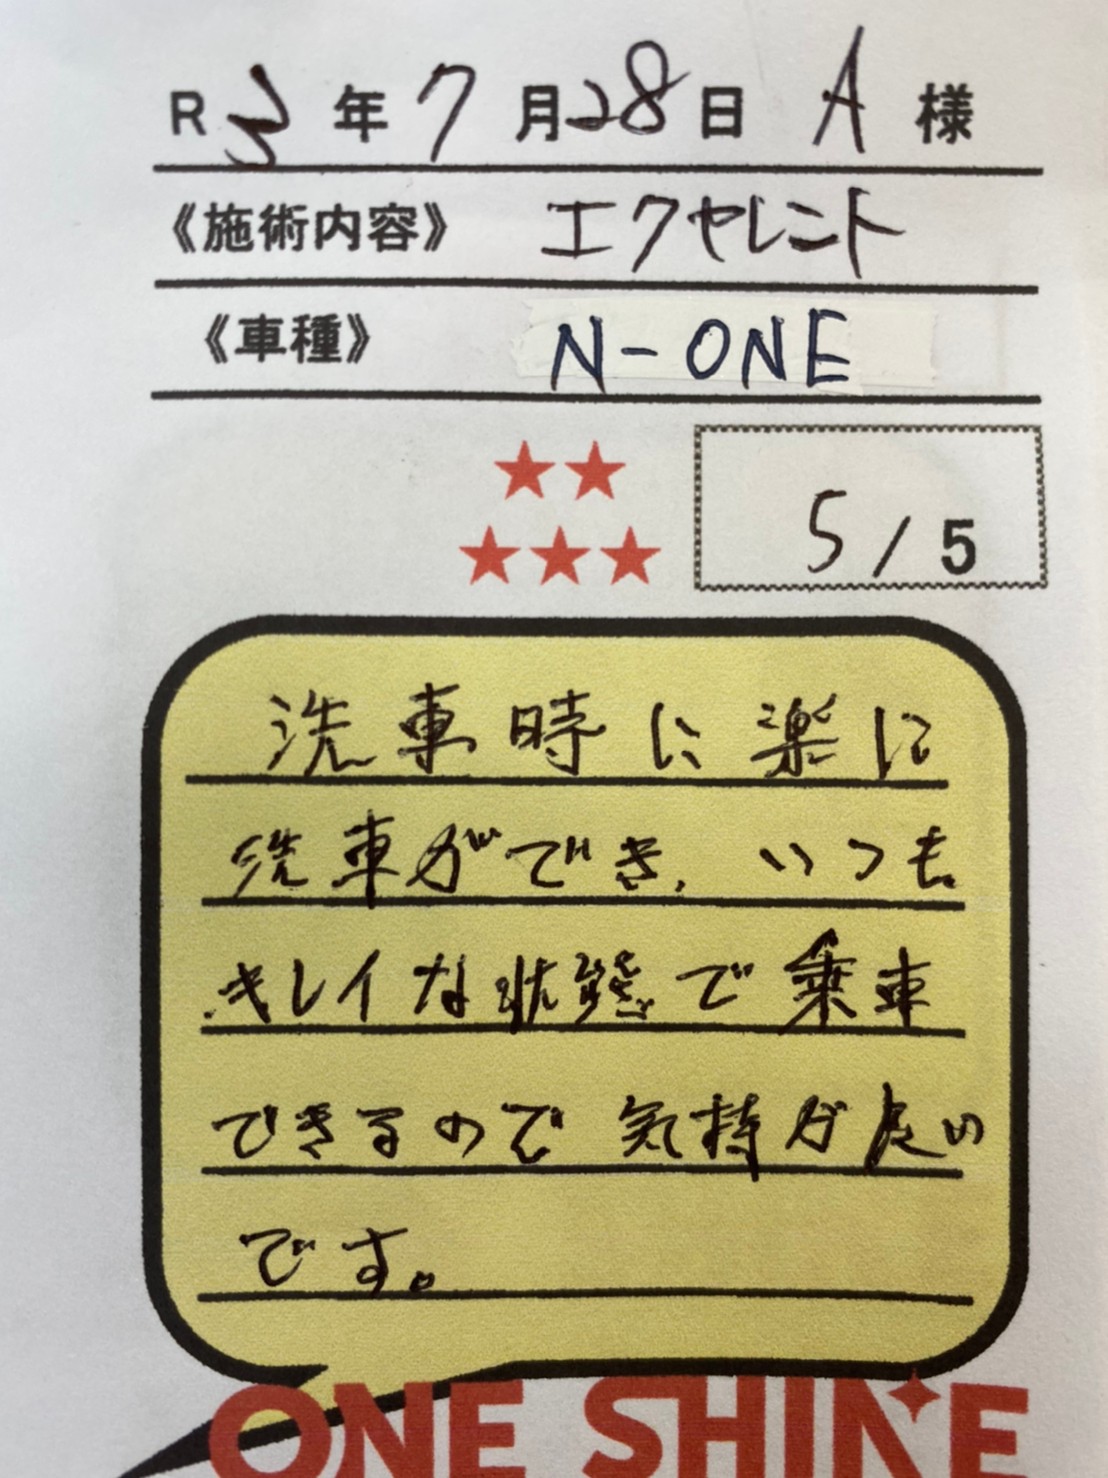 R3年7月28日 A 様
《施術内容》 エクセレント
《車種》 N-ONE
5/5
洗車時に楽に
洗車ができ、いつも
キレイな状態で乗車
できるので気持が良い
です。
ONE SHINE